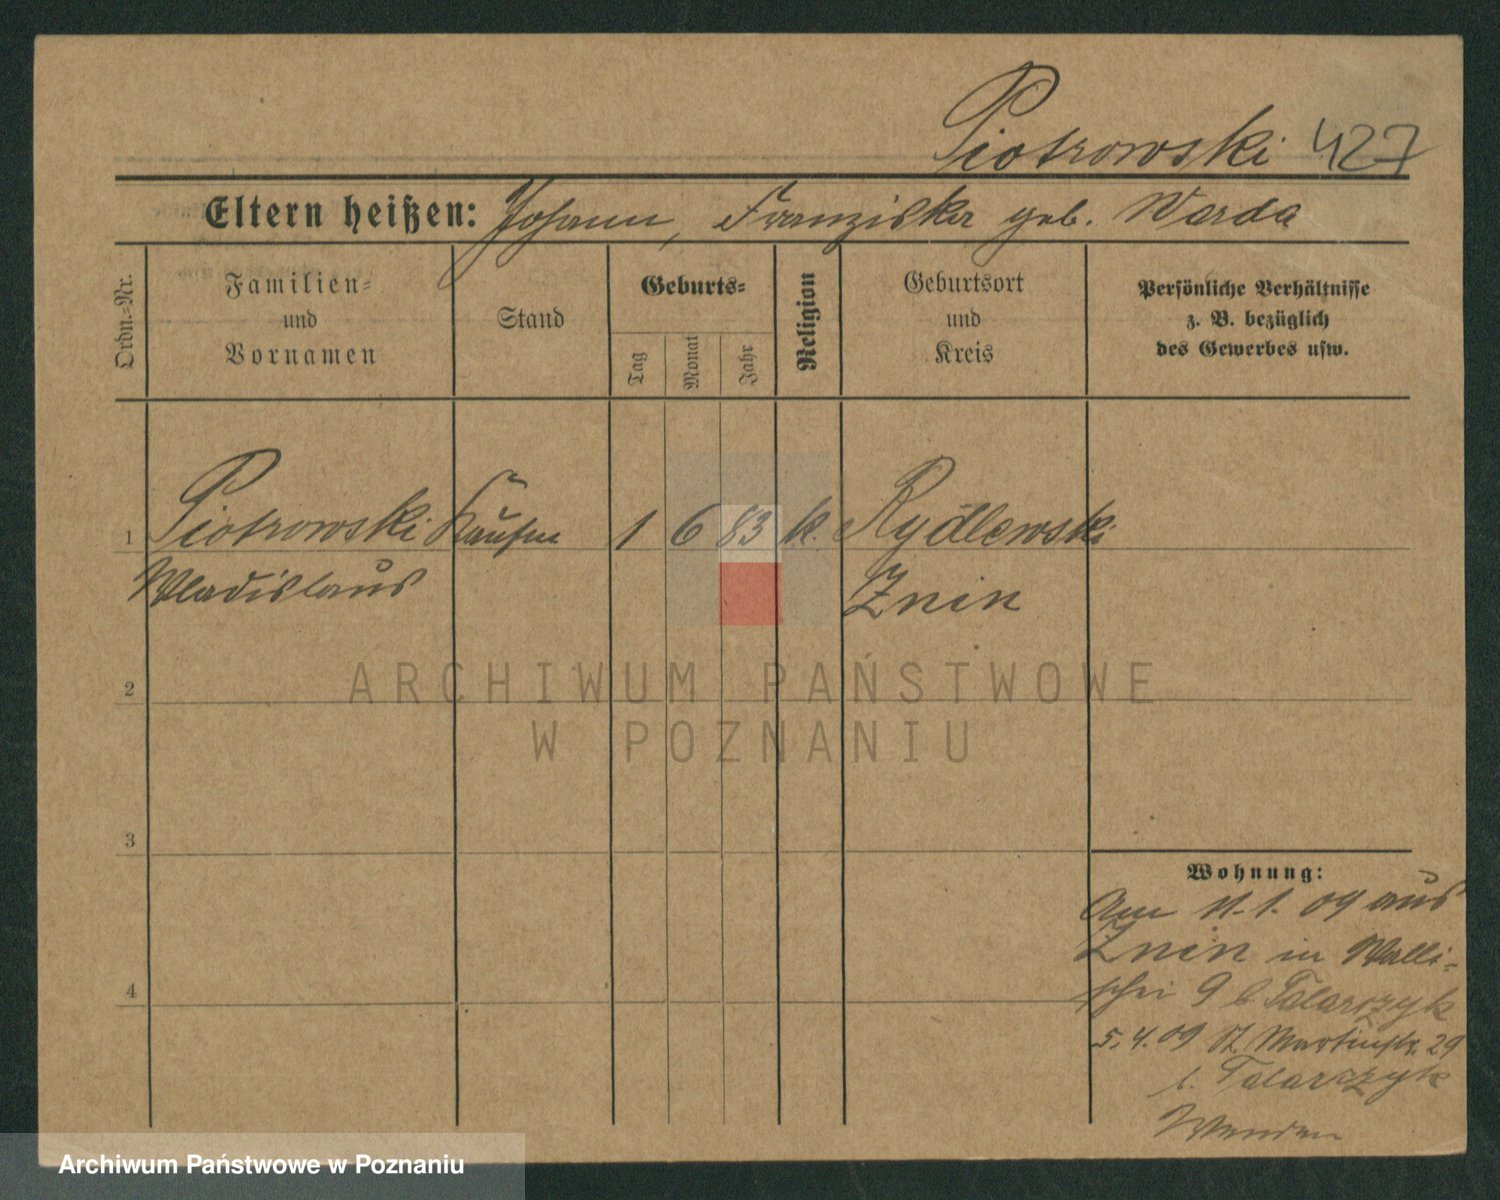 Piotrowski 427
Eltern heißen: Johann, Franziska geb. Warda
Ordn.-Nr.
Familien-
und
Vornamen
Stand
Geburts-
Tag
Monat
Jahr
Religion
Geburtsort
und
Kreis
Persönliche Verhältnisse
z. B. bezüglich
des Gewerbes usw.
1 Piotrowski Kaufm 1 6 83 k. Rydlewski
Wladislaus Znin
2
3
4
Wohnung:
Am 11.1.09 aus
Znin in Walli-
schei 9 b. Talarczyk
5.4.09 St. Martinstr. 29
b. Talarczyk
Wenden
ARCHIWUM PAŃSTWOWE
W POZNANIU
Archiwum Państwowe w Poznaniu